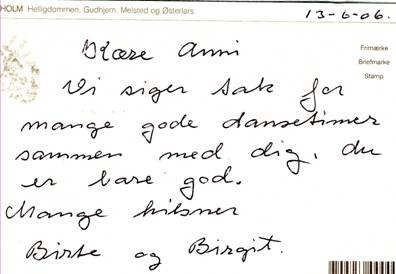 HOLM Helligdommen, Gudhjem, Melsted og Østerlars
13-6-06.
Kære Anni
Frimærke
Briefmarke
Stamp
Vi siger tak for
mange gode dansetimer
sammen med dig, du
er bare god.
Mange hilsner
Birte og Birgit.